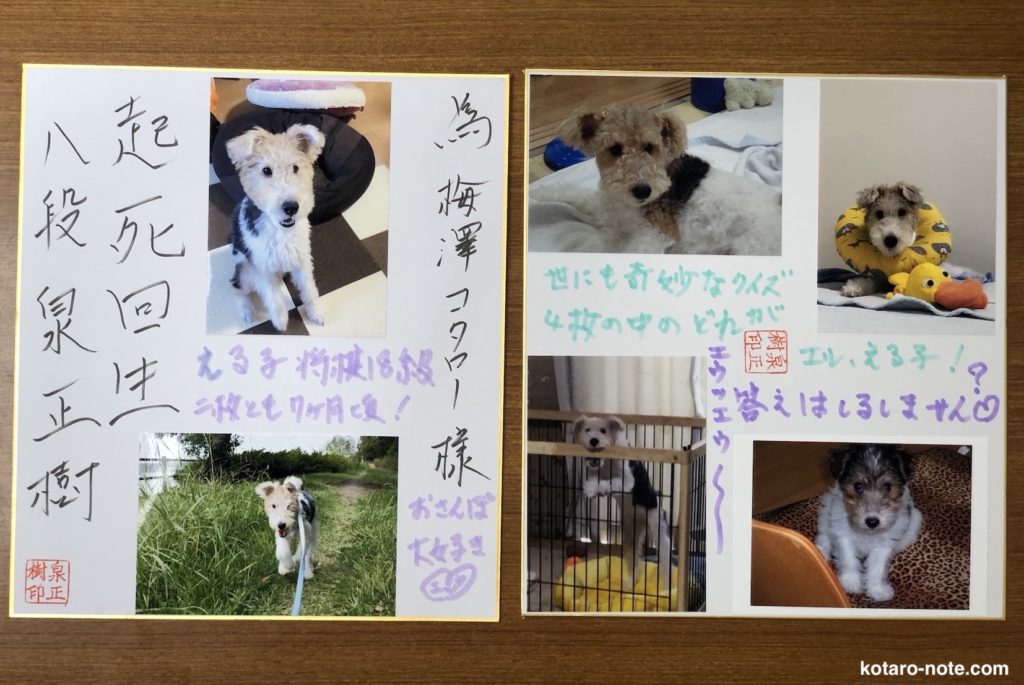 為梅澤コタロー様
起死回生
八段泉正樹
泉正樹印
える子将棋18級
二枚とも7ヶ月頃!
おさんぽ
大好き
世にも奇妙なクイズ
4枚の中のどれが
エル、える子!
泉正樹印
答えはしるしません
エウッエウ〜
kotaro-note.com